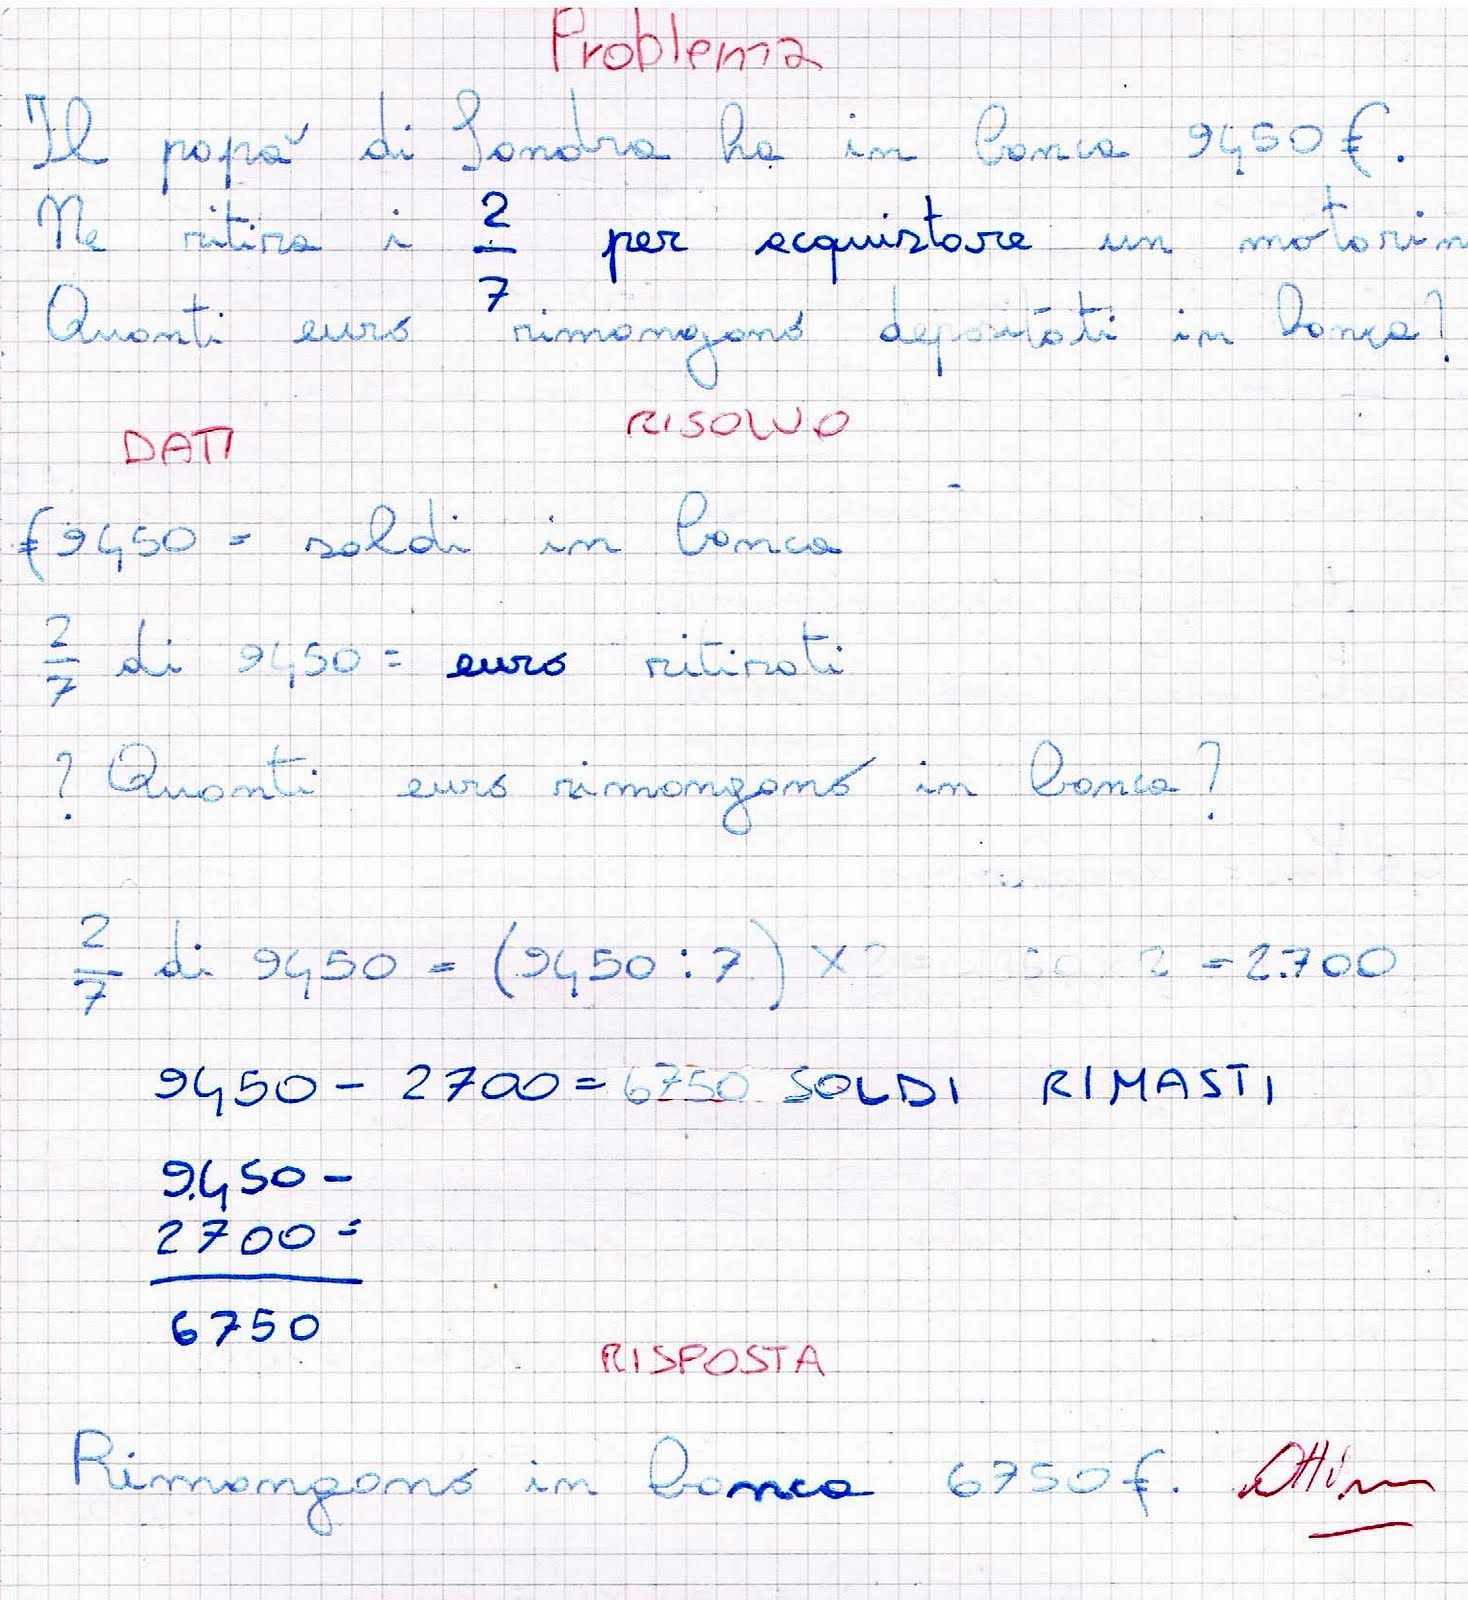 Problema
Il papà di Sandra ha in banca 9450 €.
Ne ritira i 2/7 per acquistare un motorin
Quanti euro rimangono depositati in banca?
DATI RISOLVO
€ 9450 = soldi in banca
2/7 di 9450 = euro ritirati
? Quanti euro rimangono in banca?
2/7 di 9450 = (9450 : 7) × 2 = 2 = 2.700
9450 - 2700 = 6750 SOLDI RIMASTI
9.450 -
2700 =
6750
RISPOSTA
Rimangono in banca 6750 €. Ottimo